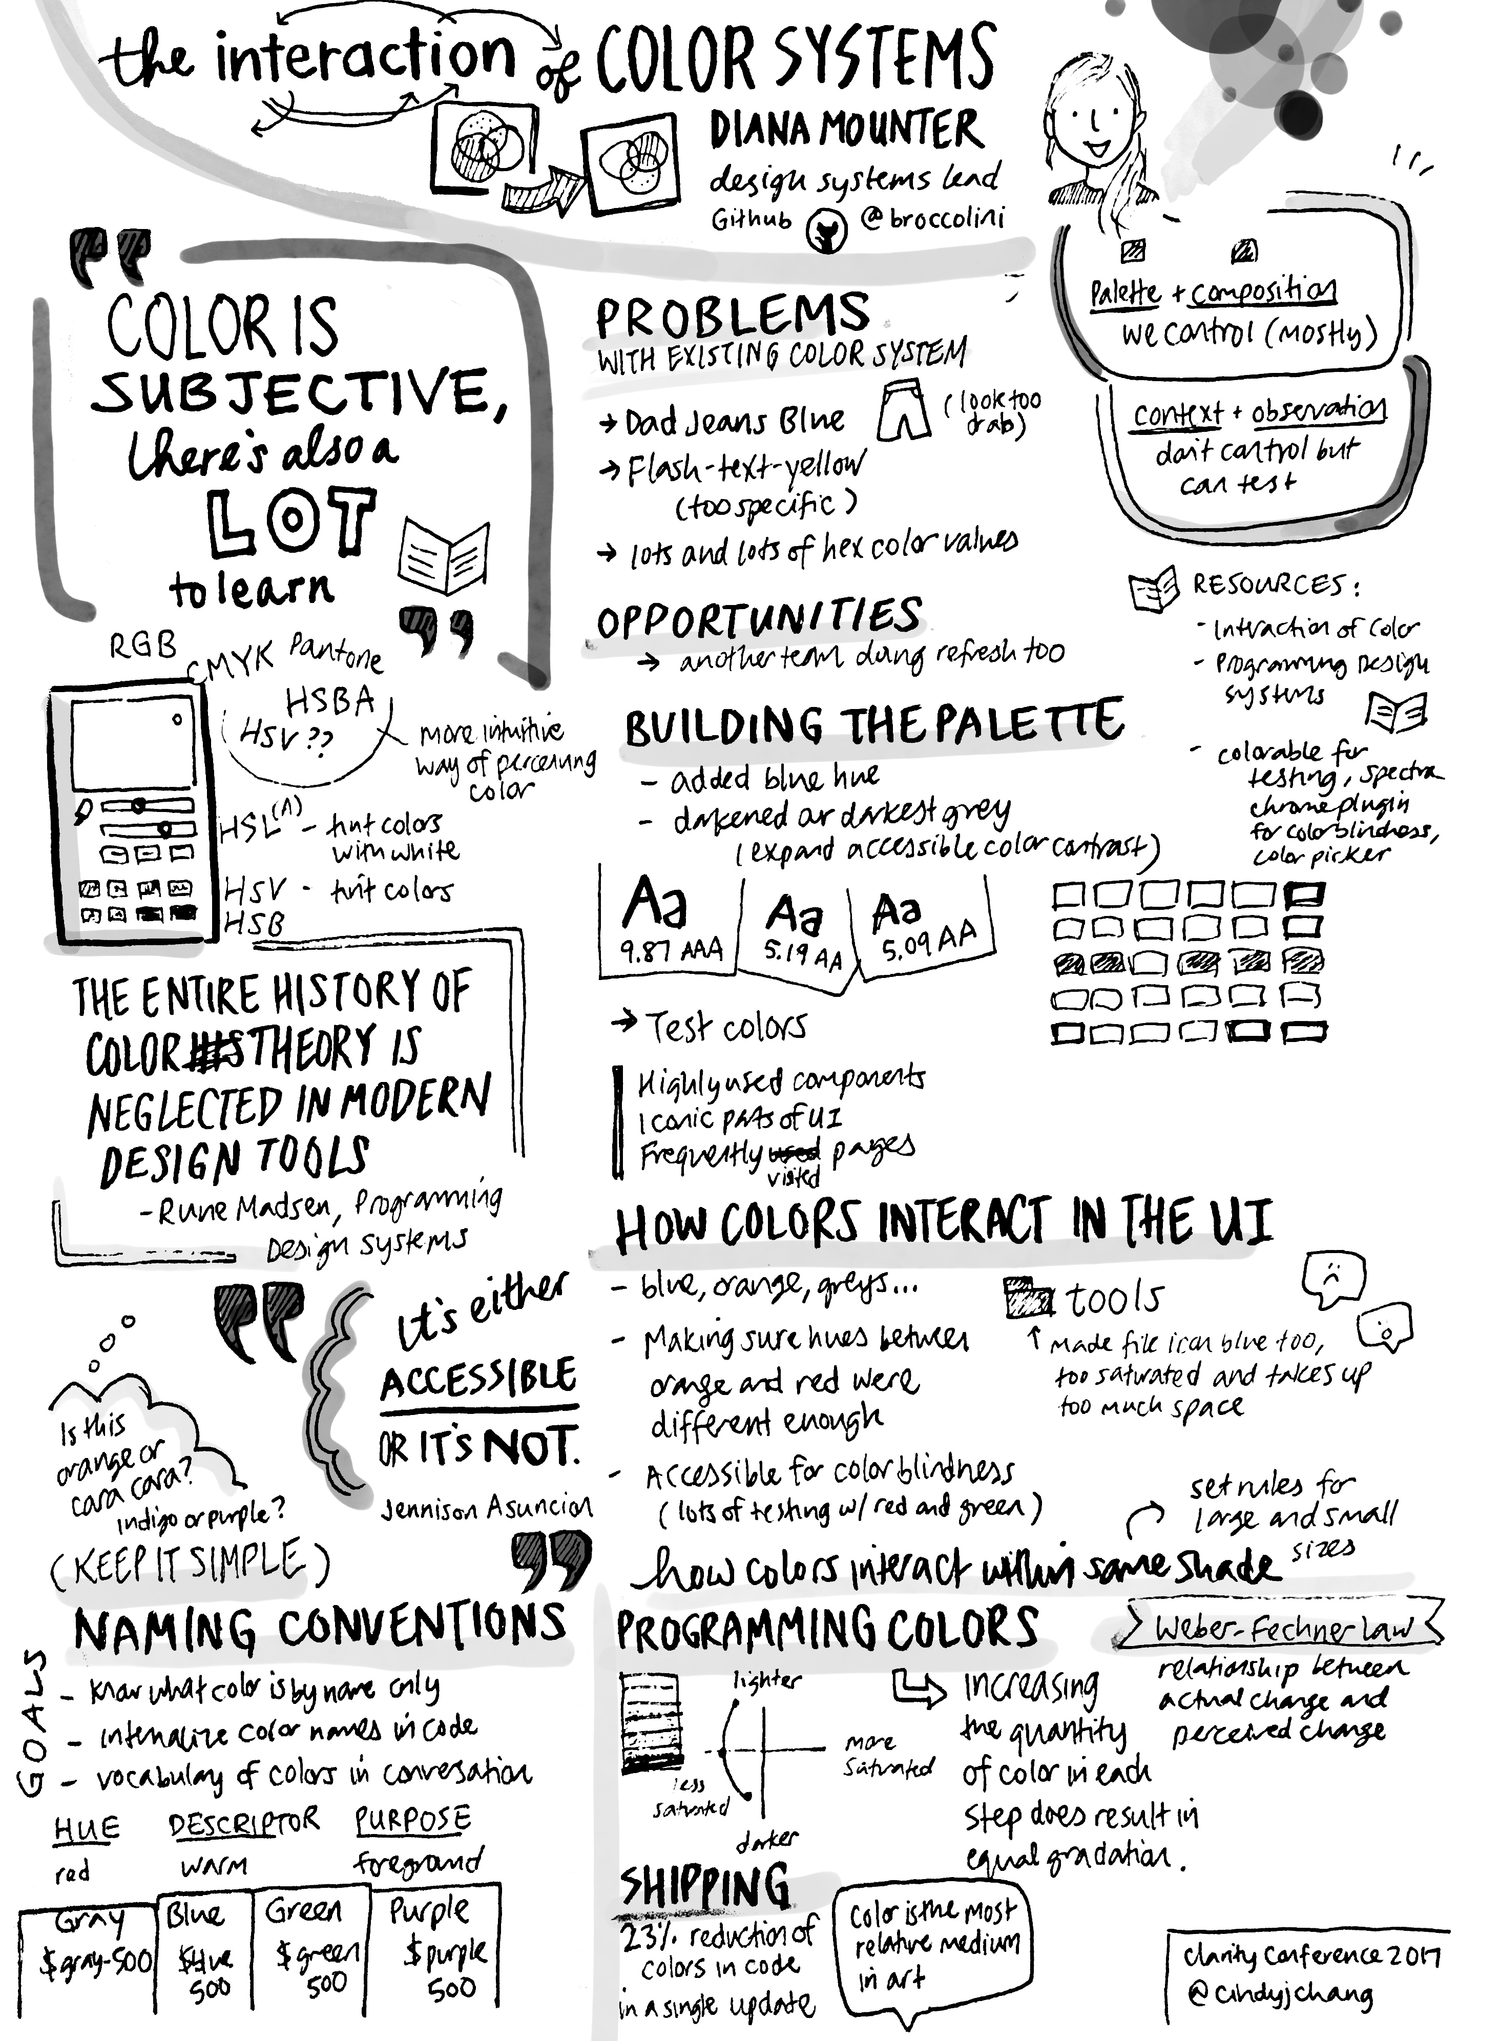 the interaction of COLOR SYSTEMS
DIANA MOUNTER
design systems lead
Github @broccolini
Palette + composition
we control (mostly)
context + observation
don't control but
can test
COLOR IS
SUBJECTIVE,
there's also a
LOT
to learn
RGB
CMYK Pantone
HSBA
HSV??
more intuitive
way of perceiving
color
HSL(A) - tint colors
with white
HSV - tint colors
HSB
THE ENTIRE HISTORY OF
COLOR THEORY IS
NEGLECTED IN MODERN
DESIGN TOOLS
- Rune Madsen, Programming
Design Systems
It's either
ACCESSIBLE
OR IT'S NOT.
Jennison Asuncion
Is this
orange or
cara cara?
indigo or purple?
(KEEP IT SIMPLE)
NAMING CONVENTIONS
GOALS
- Know what color is by name only
- internalize color names in code
- vocabulary of colors in conversation
HUE DESCRIPTOR PURPOSE
red warm foreground
Gray Blue Green Purple
$gray-500 $blue $green $purple
500 500 500
PROBLEMS
WITH EXISTING COLOR SYSTEM
→ Dad Jeans Blue (look too
drab)
→ Flash-text-yellow
(too specific)
→ lots and lots of hex color values
OPPORTUNITIES
→ another team doing refresh too
BUILDING THE PALETTE
- added blue hue
- darkened our darkest grey
(expand accessible color contrast)
Aa Aa Aa
9.87 AAA 5.19 AA 5.09 AA
→ Test colors
Highly used components
Iconic parts of UI
Frequently used pages
visited
RESOURCES:
- Intraction of Color
- Programming Design
systems
- colorable for
testing, spectra
chrome plugin
for colorblindness,
color picker
HOW COLORS INTERACT IN THE UI
- blue, orange, greys...
- Making sure hues between
orange and red were
different enough
- Accessible for colorblindness
(lots of testing w/ red and green)
tools
↑ made file icon blue too,
too saturated and takes up
too much space
set rules for
large and small
sizes
how colors interact within same shade
PROGRAMMING COLORS
lighter
more
saturated
less
saturated
darker
increasing
the quantity
of color in each
step does result in
equal gradation.
Weber-Fechner Law
relationship between
actual change and
perceived change
SHIPPING
23% reduction of
colors in code
in a single update
Color is the most
relative medium
in art
Clarity Conference 2017
@cindyjchang